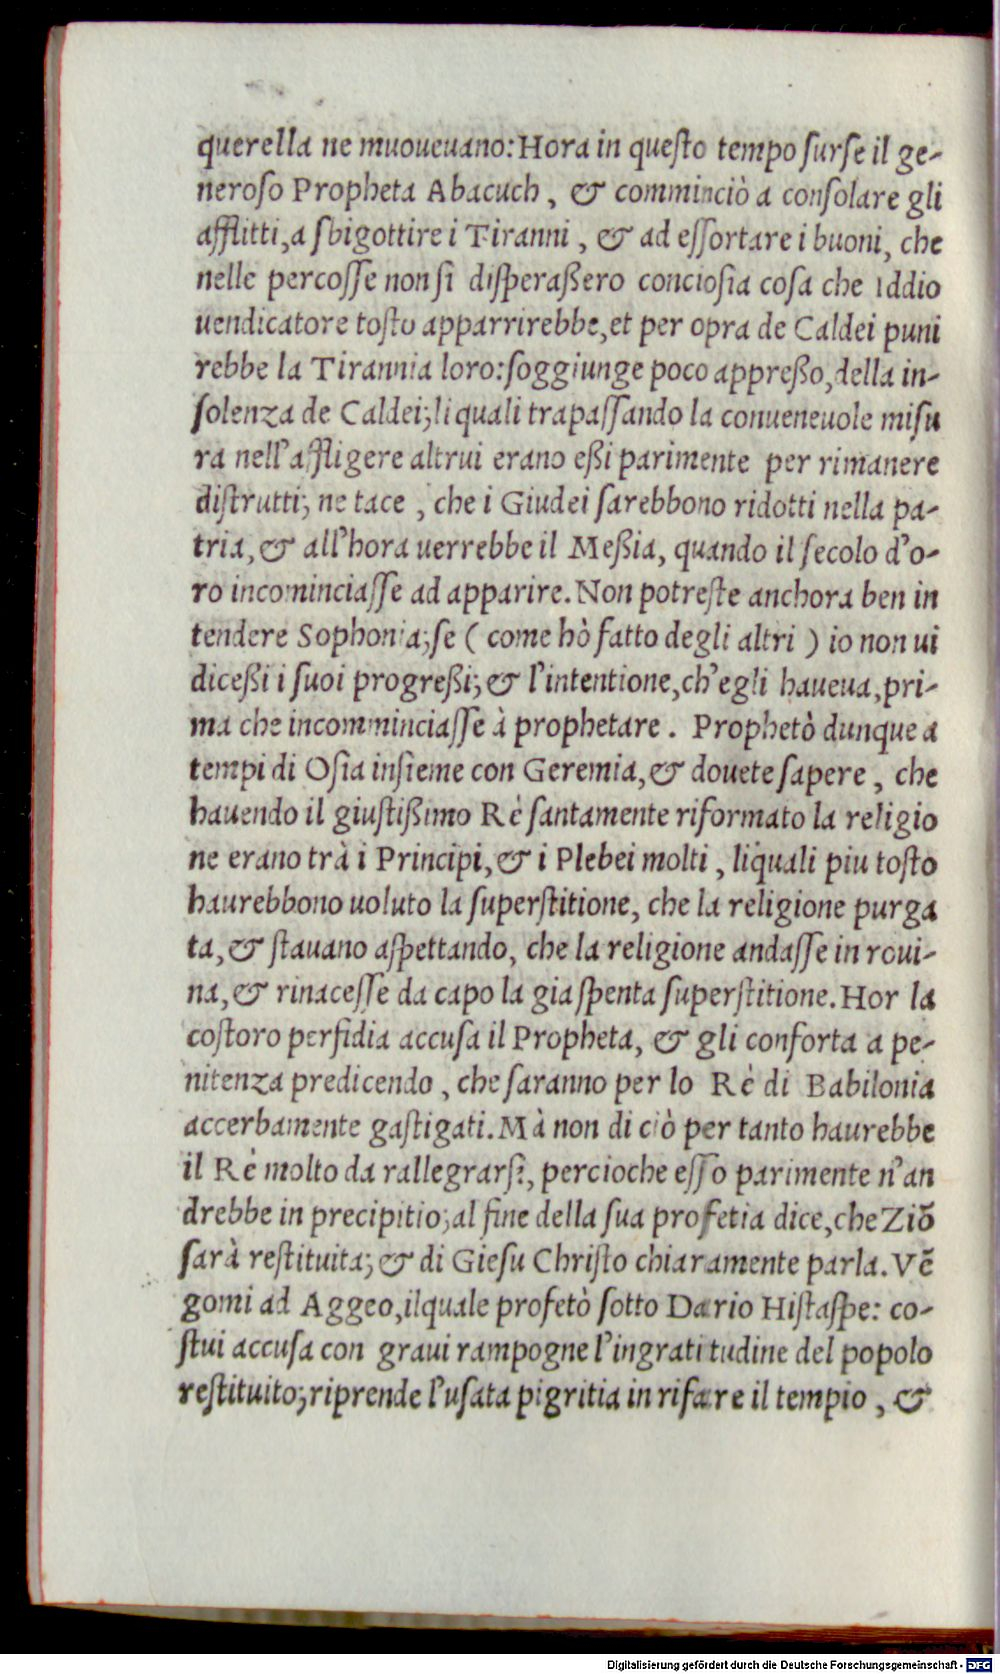 querella ne muoueuano: Hora in queſto tempo ſurſe il ge-
neroſo Propheta Abacuch, & comminciò a conſolare gli
afflitti, a ſbigottire i Tiranni, & ad eſſortare i buoni, che
nelle percoſſe non ſi diſperaßero concioſia coſa che Iddio
uendicatore toſto apparrirebbe, et per opra de Caldei puni
rebbe la Tirannia loro: ſoggiunge poco appreßo, della in-
ſolenza de Caldei; li quali trapaſſando la conueneuole miſu
ra nell'affligere altrui erano eßi parimente per rimanere
diſtrutti; ne tace, che i Giudei ſarebbono ridotti nella pa-
tria, & all'hora uerrebbe il Meßia, quando il ſecolo d'o-
ro incominciaſſe ad apparire. Non potreſte anchora ben in
tendere Sophonia; ſe ( come hò fatto degli altri ) io non ui
diceßi i ſuoi progreßi; & l'intentione, ch'egli haueua, pri-
ma che incomminciaſſe à prophetare. Prophetò dunque a
tempi di Oſia inſieme con Geremia, & douete ſapere, che
hauendo il giuſtißimo Rè ſantamente riformato la religio
ne erano trà i Principi, & i Plebei molti, liquali piu toſto
haurebbono uoluto la ſuperſtitione, che la religione purga
ta, & ſtauano aſpettando, che la religione andaſſe in roui-
na, & rinaceſſe da capo la gia ſpenta ſuperſtitione. Hor la
coſtoro perfidia accuſa il Propheta, & gli conforta a pe-
nitenza predicendo, che ſaranno per lo Rè di Babilonia
accerbamente gaſtigati. Mà non di ciò per tanto haurebbe
il Rè molto da rallegrarſi, percioche eſſo parimente n'an
drebbe in precipitio; al fine della ſua profetia dice, che Ziō
ſarà reſtituita; & di Gieſu Chriſto chiaramente parla. Vē
gomi ad Aggeo, ilquale profetò ſotto Dario Hiſtaſpe: co-
ſtui accuſa con graui rampogne l'ingratitudine del popolo
reſtituito; riprende l'uſata pigritia in rifare il tempio, &
Digitalisierung gefördert durch die Deutsche Forschungsgemeinschaft - DFG